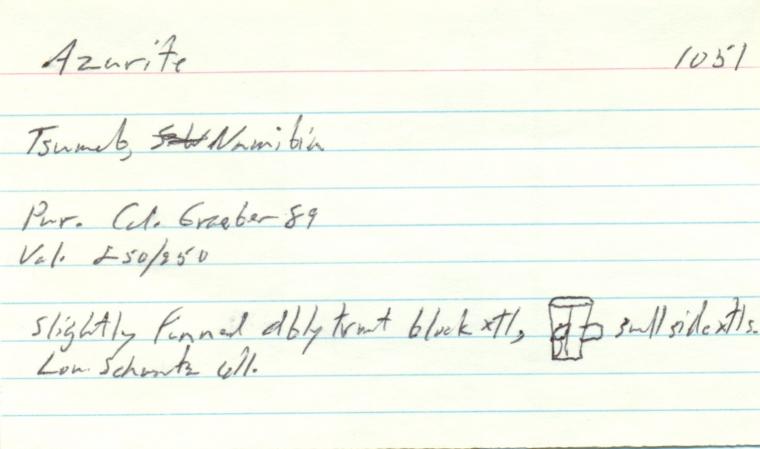 Azurite 1051
Tsumeb, Namibia
Pur. Cal. Graeber 89
Val. 250/950
Slightly Fanned dbly trmt block xtl, small side xtls.
Lou Schwartz Coll.